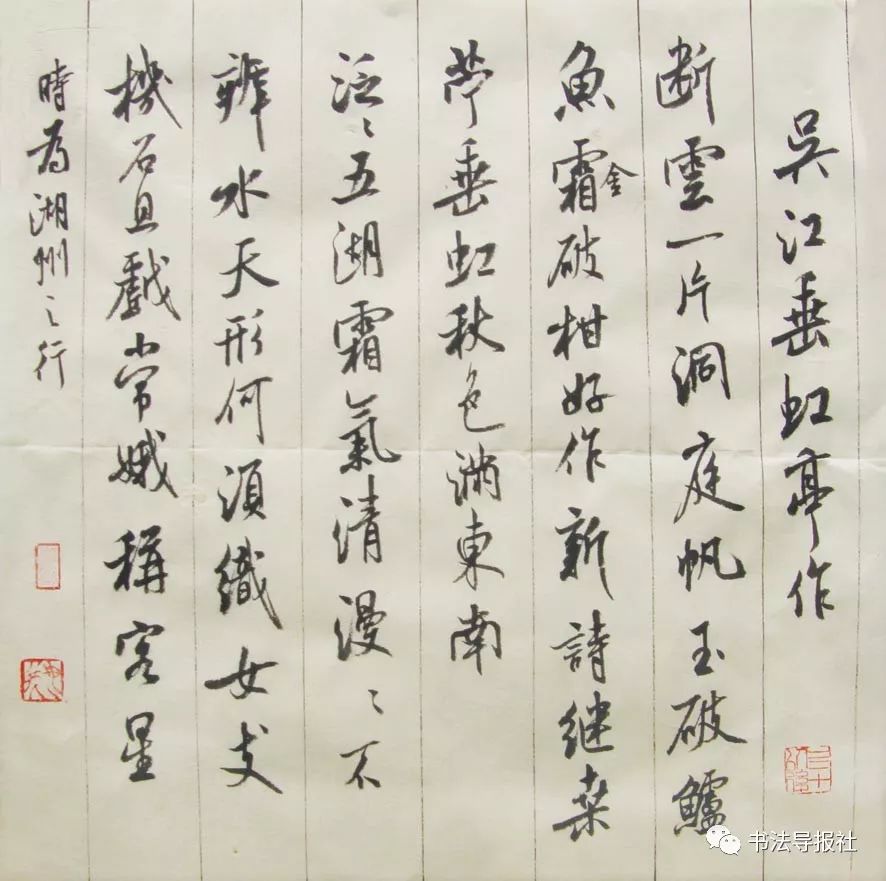 吳江垂虹亭作
断雲一片洞庭帆玉破鱸
魚霜金破柑好作新詩継桒
苧垂虹秋色滿東南
泛〻五湖霜氣清漫〻不
辨水天形何須織女支
機石且戲常娥稱客星
時為湖州之行
书法导报社